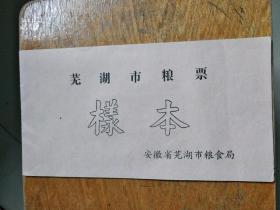 芜湖市粮票
樣本
安徽省芜湖市粮食局